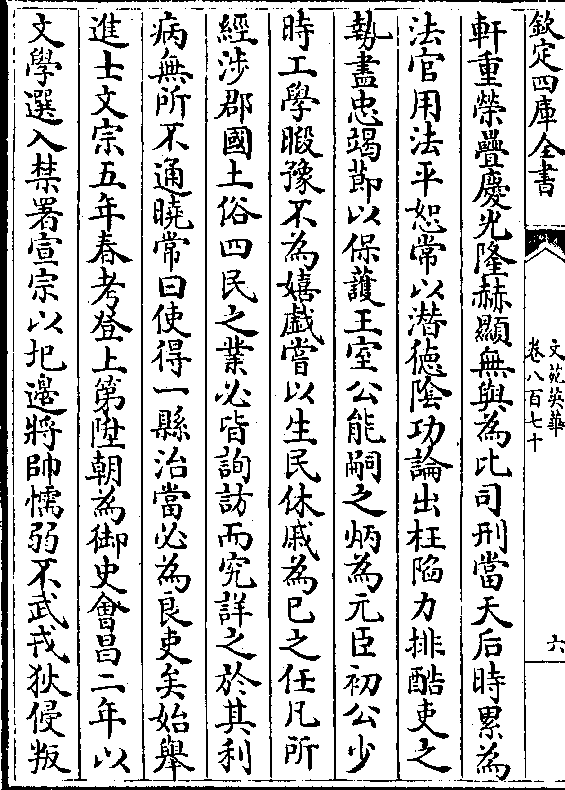 欽定四庫全書
文苑英華
卷八百七十
六
軒重榮疊慶光隆赫顯無與為比司刑當天后時累為
法官用法平恕常以潛徳陰功論出枉陷力排酷吏之
執盡忠竭節以保護王室公能嗣之炳為元臣初公少
時工學暇豫不為嬉戲嘗以生民休戚為已之任凡所
經涉郡國土俗四民之業必皆詢訪而究詳之於其利
病無所不通曉常曰使得一縣治當必為良吏矣始舉
進士文宗五年春考登上第陞朝為御史會昌二年以
文學選入禁署宣宗以圯邉將帥懦弱不武戎狄侵叛